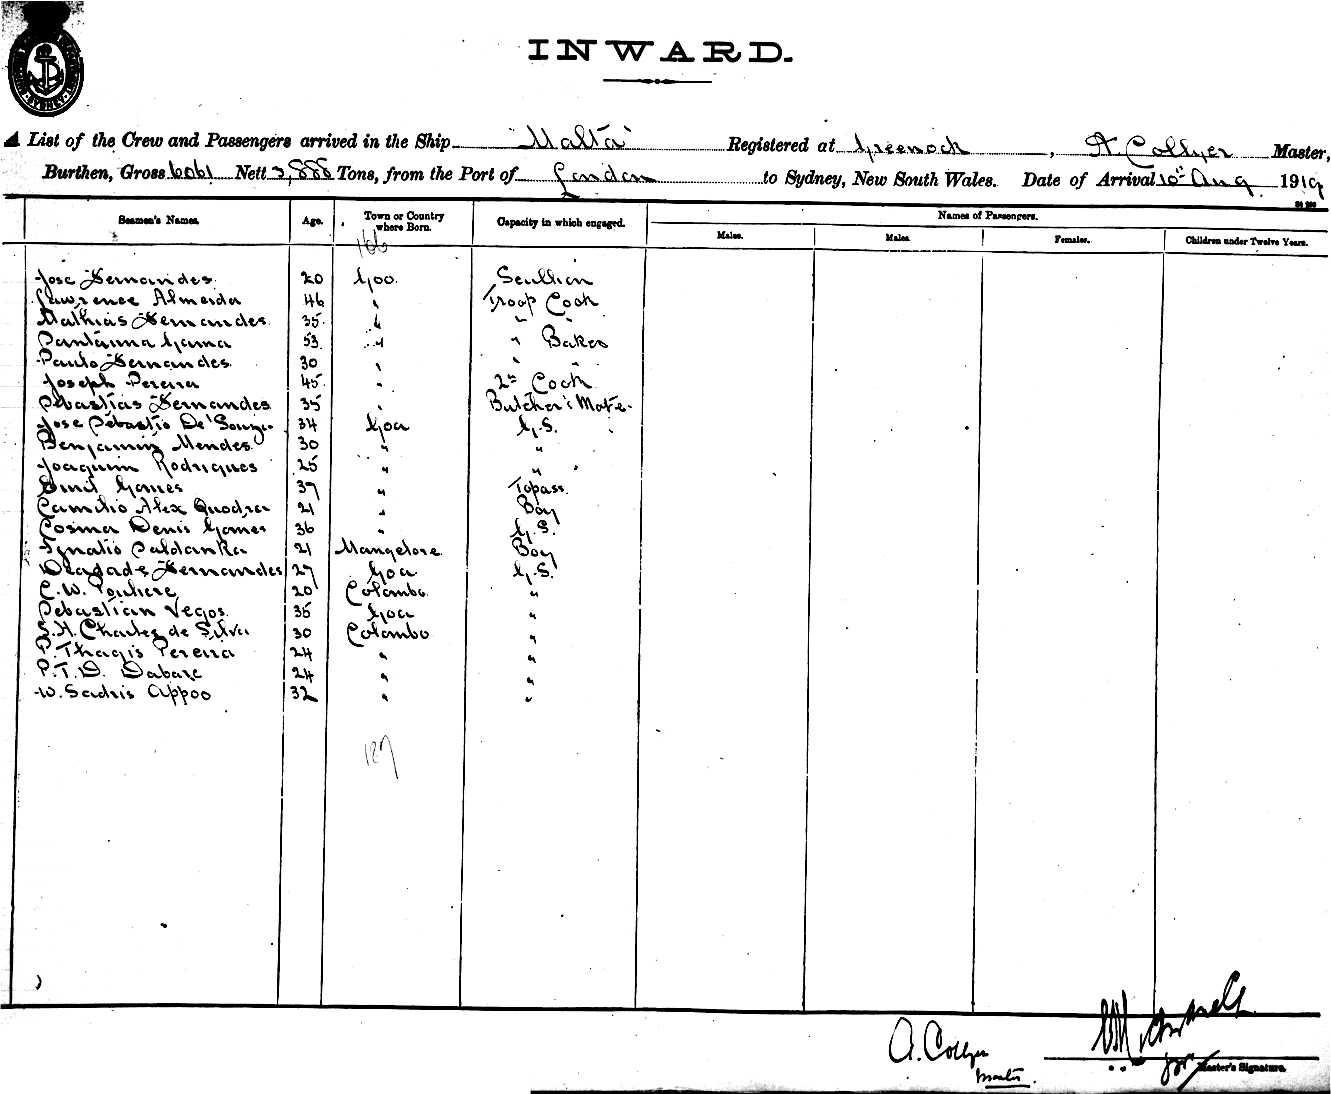 SYDNEY
INWARD.
A List of the Crew and Passengers arrived in the Ship "Malta" Registered at Greenock, A. Collyer Master,
Burthen, Gross 6061 Nett 3,888 Tons, from the Port of London to Sydney, New South Wales. Date of Arrival 10th Aug 1919
Seamen's Names. Age. Town or Country where Born. Capacity in which engaged. Names of Passengers.
Males. Males. Females. Children under Twelve Years.
166
Jose Fernandes 20 Goa Scullion
Lawrence Almeida 46 " Troop Cook
Mathias Fernandes 35 " " "
Pantanna Gama 53 " " Baker
Paulo Fernandes 30 " " "
Joseph Pereira 45 " 2nd Cook
Sebastias Fernandes 35 " Butcher's Mate
Jose Sebastio De Souza 34 Goa G.S.
Benjamin Mendes 30 " "
Joaquim Rodrigues 25 " "
Gomes 37 " Topass
Camilio Alex Quadra 21 " Boy
Cosma Denis Gomes 36 " G.S.
Ignatio Saldanha 21 Mangelore Boy
Fernandes 27 Goa G.S.
C.W. 20 Colombo "
Sebastian Vegos 35 Goa "
S.H. Charles de Silva 30 Colombo "
P. Thagis Pereira 24 " "
P.T.D. Dabare 24 " "
W. Sadris Appoo 32 " "
127
A. Collyer
Master
Master's Signature.